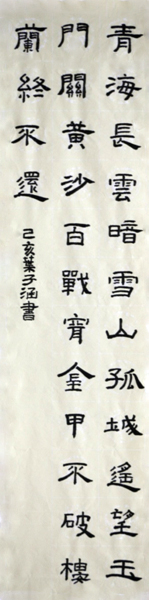 青海長雲暗雪山孤城遙望玉
門關黃沙百戰穿金甲不破樓
蘭終不還
己亥葉子涵書